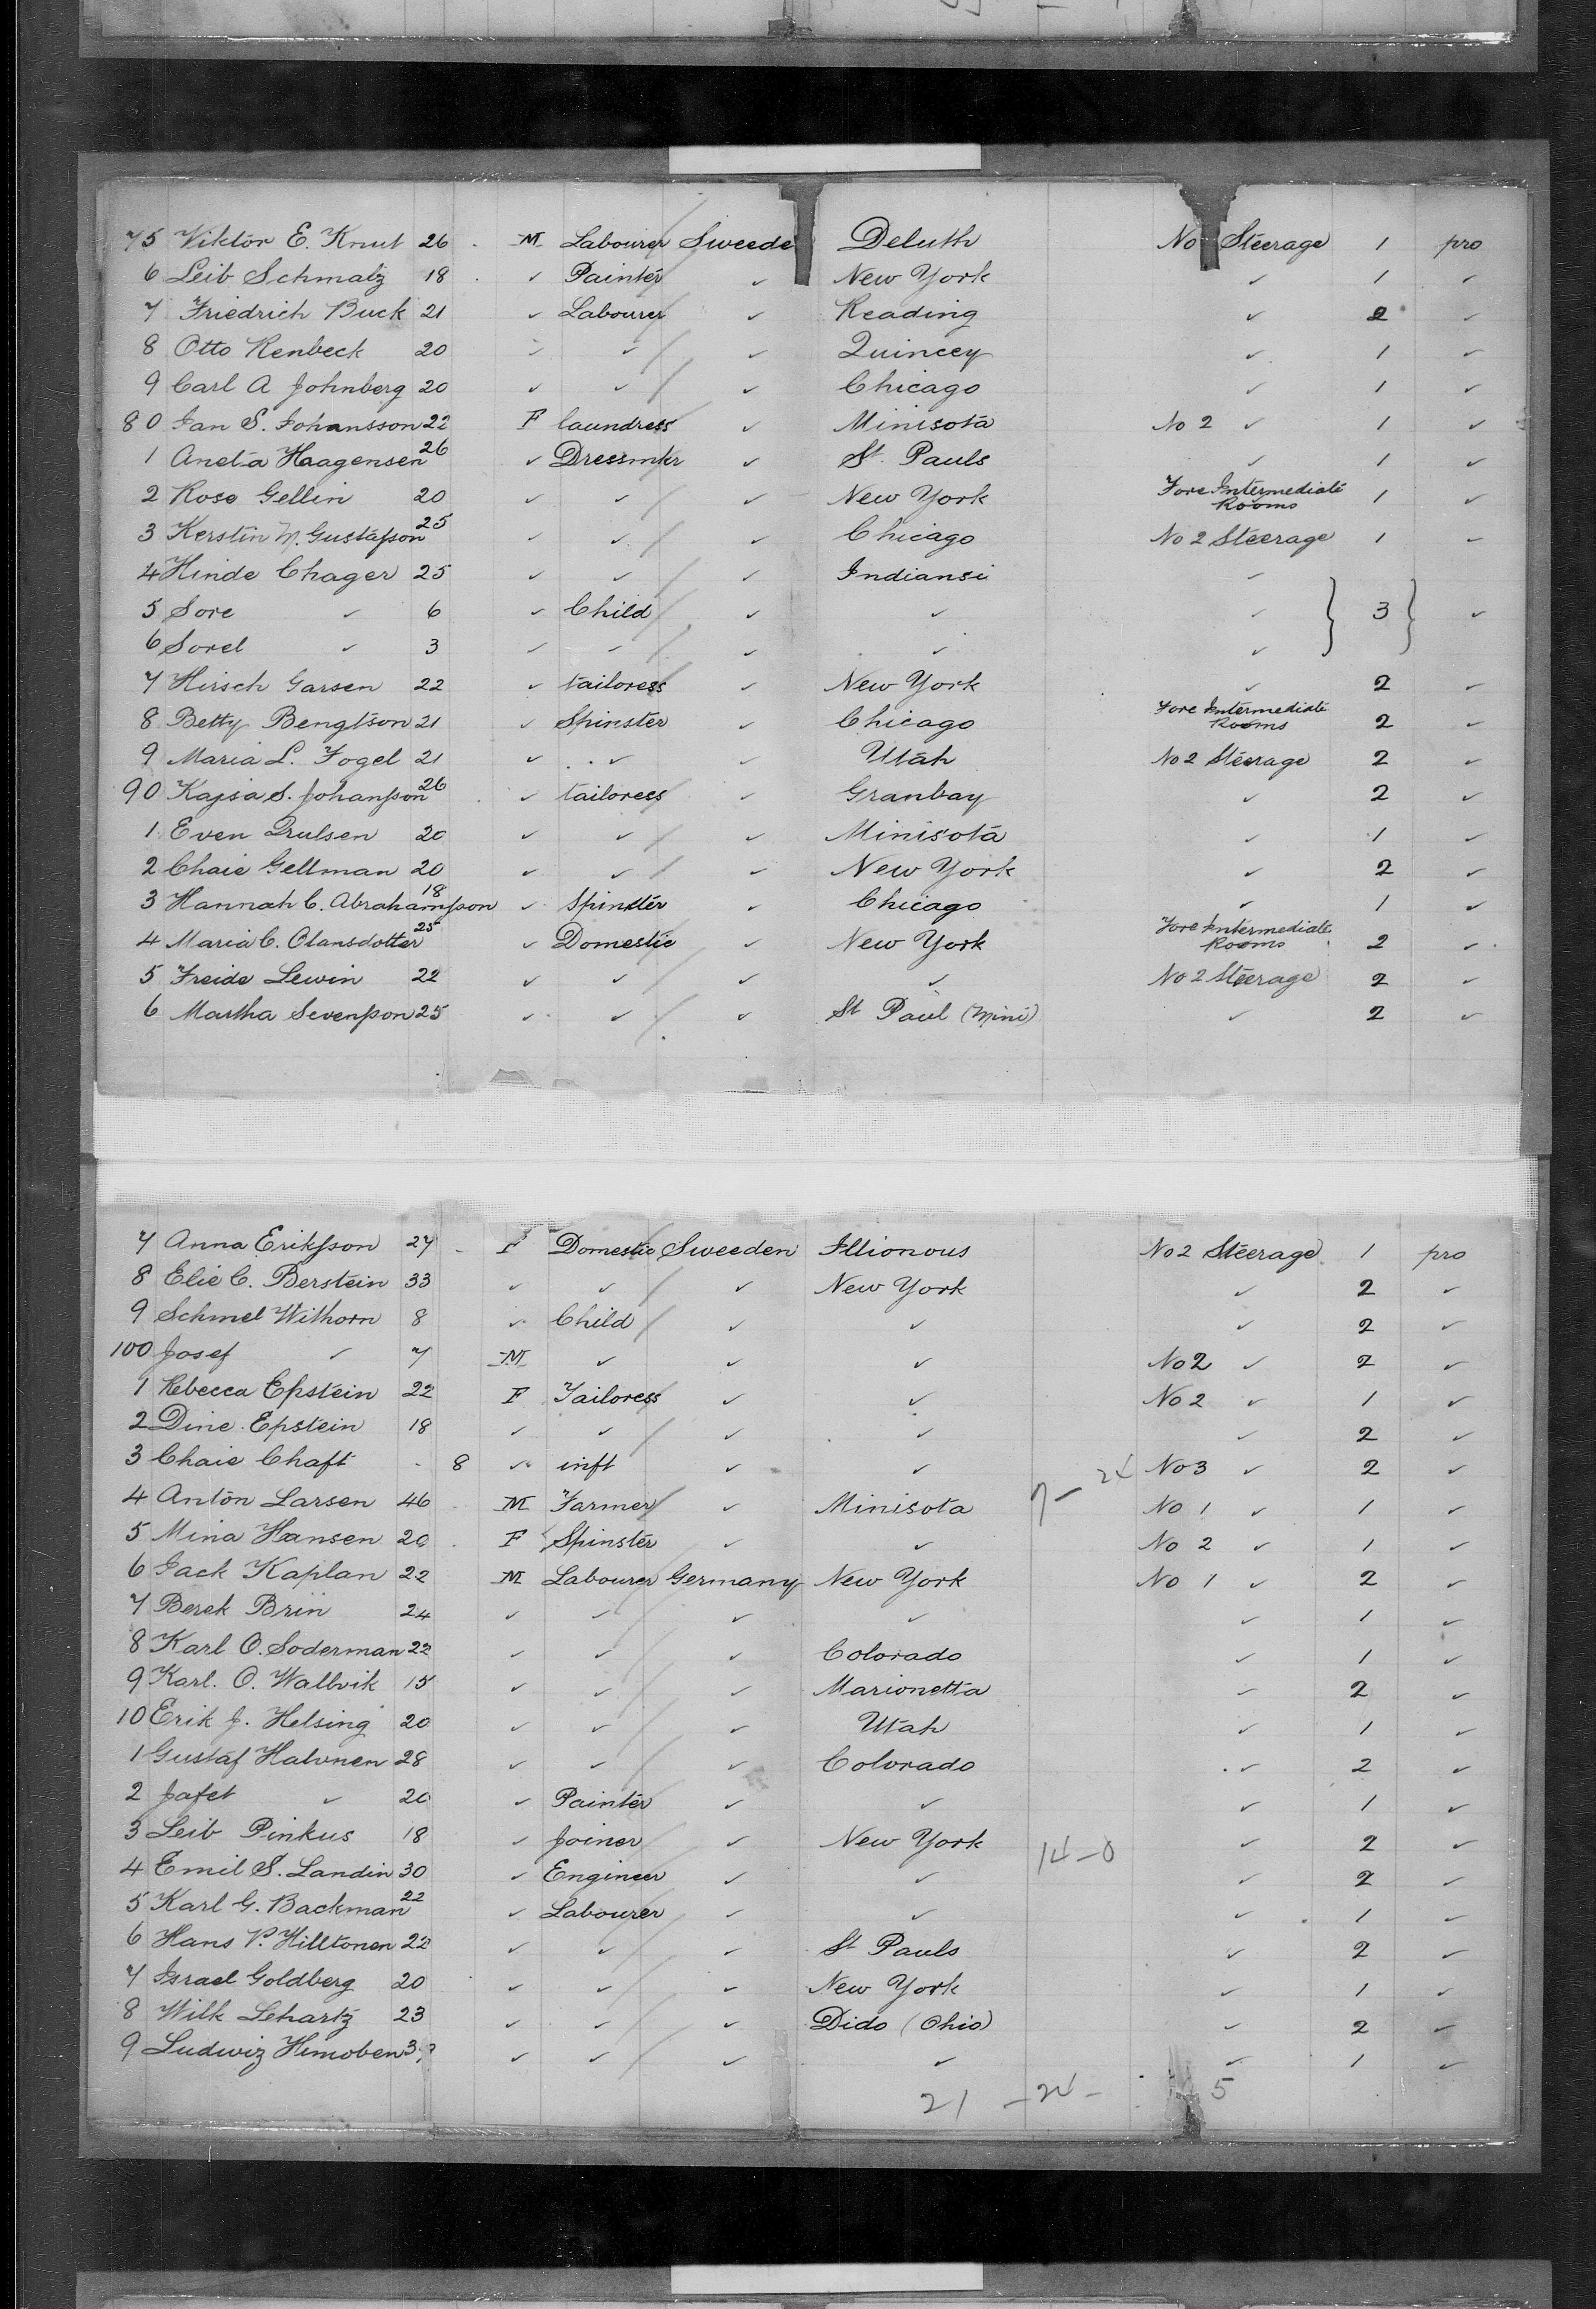 75 Viktor E. Knut 26 M Labourer Sweede Deluth No Steerage 1 pro
6 Leib Schmalz 18 ✓ Painter ✓ New York ✓ 1 ✓
7 Friedrich Buck 21 ✓ Labourer ✓ Reading ✓ 2 ✓
8 Otto Renbeck 20 ✓ ✓ ✓ Quincey ✓ 1 ✓
9 Carl A Johnberg 20 ✓ ✓ ✓ Chicago ✓ 1 ✓
80 Jan S. Johansson 22 F laundress ✓ Minisota No 2 ✓ 1 ✓
1 Aneta Haagensen 26 ✓ Dressmkr ✓ St. Pauls ✓ 1 ✓
2 Rose Gellin 20 ✓ ✓ ✓ New York Fore Intermediate Rooms 1 ✓
3 Kerstin M. Gustafson 25 ✓ ✓ ✓ Chicago No 2 Steerage 1 ✓
4 Hinde Chager 25 ✓ ✓ ✓ Indiansi ✓
5 Sore ✓ 6 ✓ Child ✓ ✓ ✓ } 3 } ✓
6 Sorel ✓ 3 ✓ ✓ ✓ ✓ ✓
7 Hirsch Garsen 22 ✓ tailoress ✓ New York ✓ 2 ✓
8 Betty Bengtson 21 ✓ Spinster ✓ Chicago Fore Intermediate Rooms 2 ✓
9 Maria L. Fogel 21 ✓ ✓ ✓ Utah No 2 Steerage 2 ✓
90 Kajsa S. Johansson 26 ✓ tailoress ✓ Granbay ✓ 2 ✓
1 Even Trulsen 20 ✓ ✓ ✓ Minisota ✓ 1 ✓
2 Chaie Gellman 20 ✓ ✓ ✓ New York ✓ 2 ✓
3 Hannah C. Abrahamsson 18 ✓ Spinster ✓ Chicago ✓ 1 ✓
4 Maria C. Olansdotter 25 ✓ Domestic ✓ New York Fore Intermediate Rooms 2 ✓
5 Freide Lewin 22 ✓ ✓ ✓ ✓ No 2 Steerage 2 ✓
6 Martha Sevensson 25 ✓ ✓ ✓ St Paul (Mini) ✓ 2 ✓
7 Anna Eriksson 27 F Domestic Sweeden Illionous No 2 Steerage 1 pro
8 Elie C. Berstein 33 ✓ ✓ ✓ New York ✓ 2 ✓
9 Schmel Withorn 8 ✓ Child ✓ ✓ ✓ 2 ✓
100 Josef ✓ 7 M ✓ ✓ ✓ No 2 ✓ 2 ✓
1 Rebecca Epstein 22 F Tailoress ✓ ✓ No 2 ✓ 1 ✓
2 Dine Epstein 18 ✓ ✓ ✓ ✓ ✓ 2 ✓
3 Chaie Chaft 8 ✓ inft ✓ ✓ No 3 ✓ 2 ✓
4 Anton Larsen 46 M Farmer ✓ Minisota 7 - 24 No 1 ✓ 1 ✓
5 Mina Hansen 20 F Spinster ✓ ✓ No 2 ✓ 1 ✓
6 Jack Kaplan 22 M Labourer Germany New York No 1 ✓ 2 ✓
7 Berek Brin 24 ✓ ✓ ✓ ✓ ✓ 1 ✓
8 Karl O. Soderman 22 ✓ ✓ ✓ Colorado ✓ 1 ✓
9 Karl. O. Wallvik 15 ✓ ✓ ✓ Marionetta ✓ 2 ✓
10 Erik J. Helsing 20 ✓ ✓ ✓ Utah ✓ 1 ✓
1 Gustaf Halonen 28 ✓ ✓ ✓ Colorado ✓ 2 ✓
2 Jafet ✓ 20 ✓ Painter ✓ ✓ ✓ 1 ✓
3 Leib Pinkus 18 ✓ Joiner ✓ New York ✓ 2 ✓
4 Emil S. Landin 30 ✓ Engineer ✓ ✓ 14 - 0 ✓ 2 ✓
5 Karl G. Backman 22 ✓ Labourer ✓ ✓ ✓ 1 ✓
6 Hans P. Hilltonen 22 ✓ ✓ ✓ St Pauls ✓ 2 ✓
7 Israel Goldberg 20 ✓ ✓ ✓ New York ✓ 1 ✓
8 Wilk Lehartz 23 ✓ ✓ ✓ Dido (Ohio) ✓ 2 ✓
9 Ludwiz Himoben ✓ ✓ ✓ ✓ ✓ 1 ✓
21 - 24 - 5